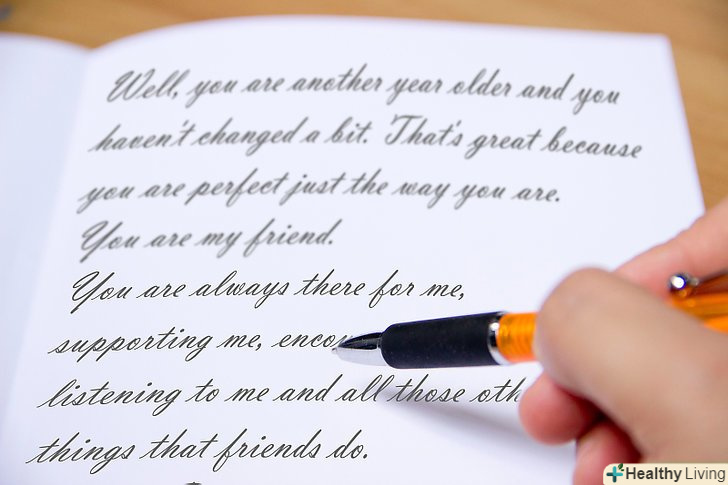 Well, you are another year older and you
haven't changed a bit. That's great because
you are perfect just the way you are.
You are my friend.
You are always there for me,
supporting me, enco
listening to me and all those oth
things that friends do.
Healthy Living